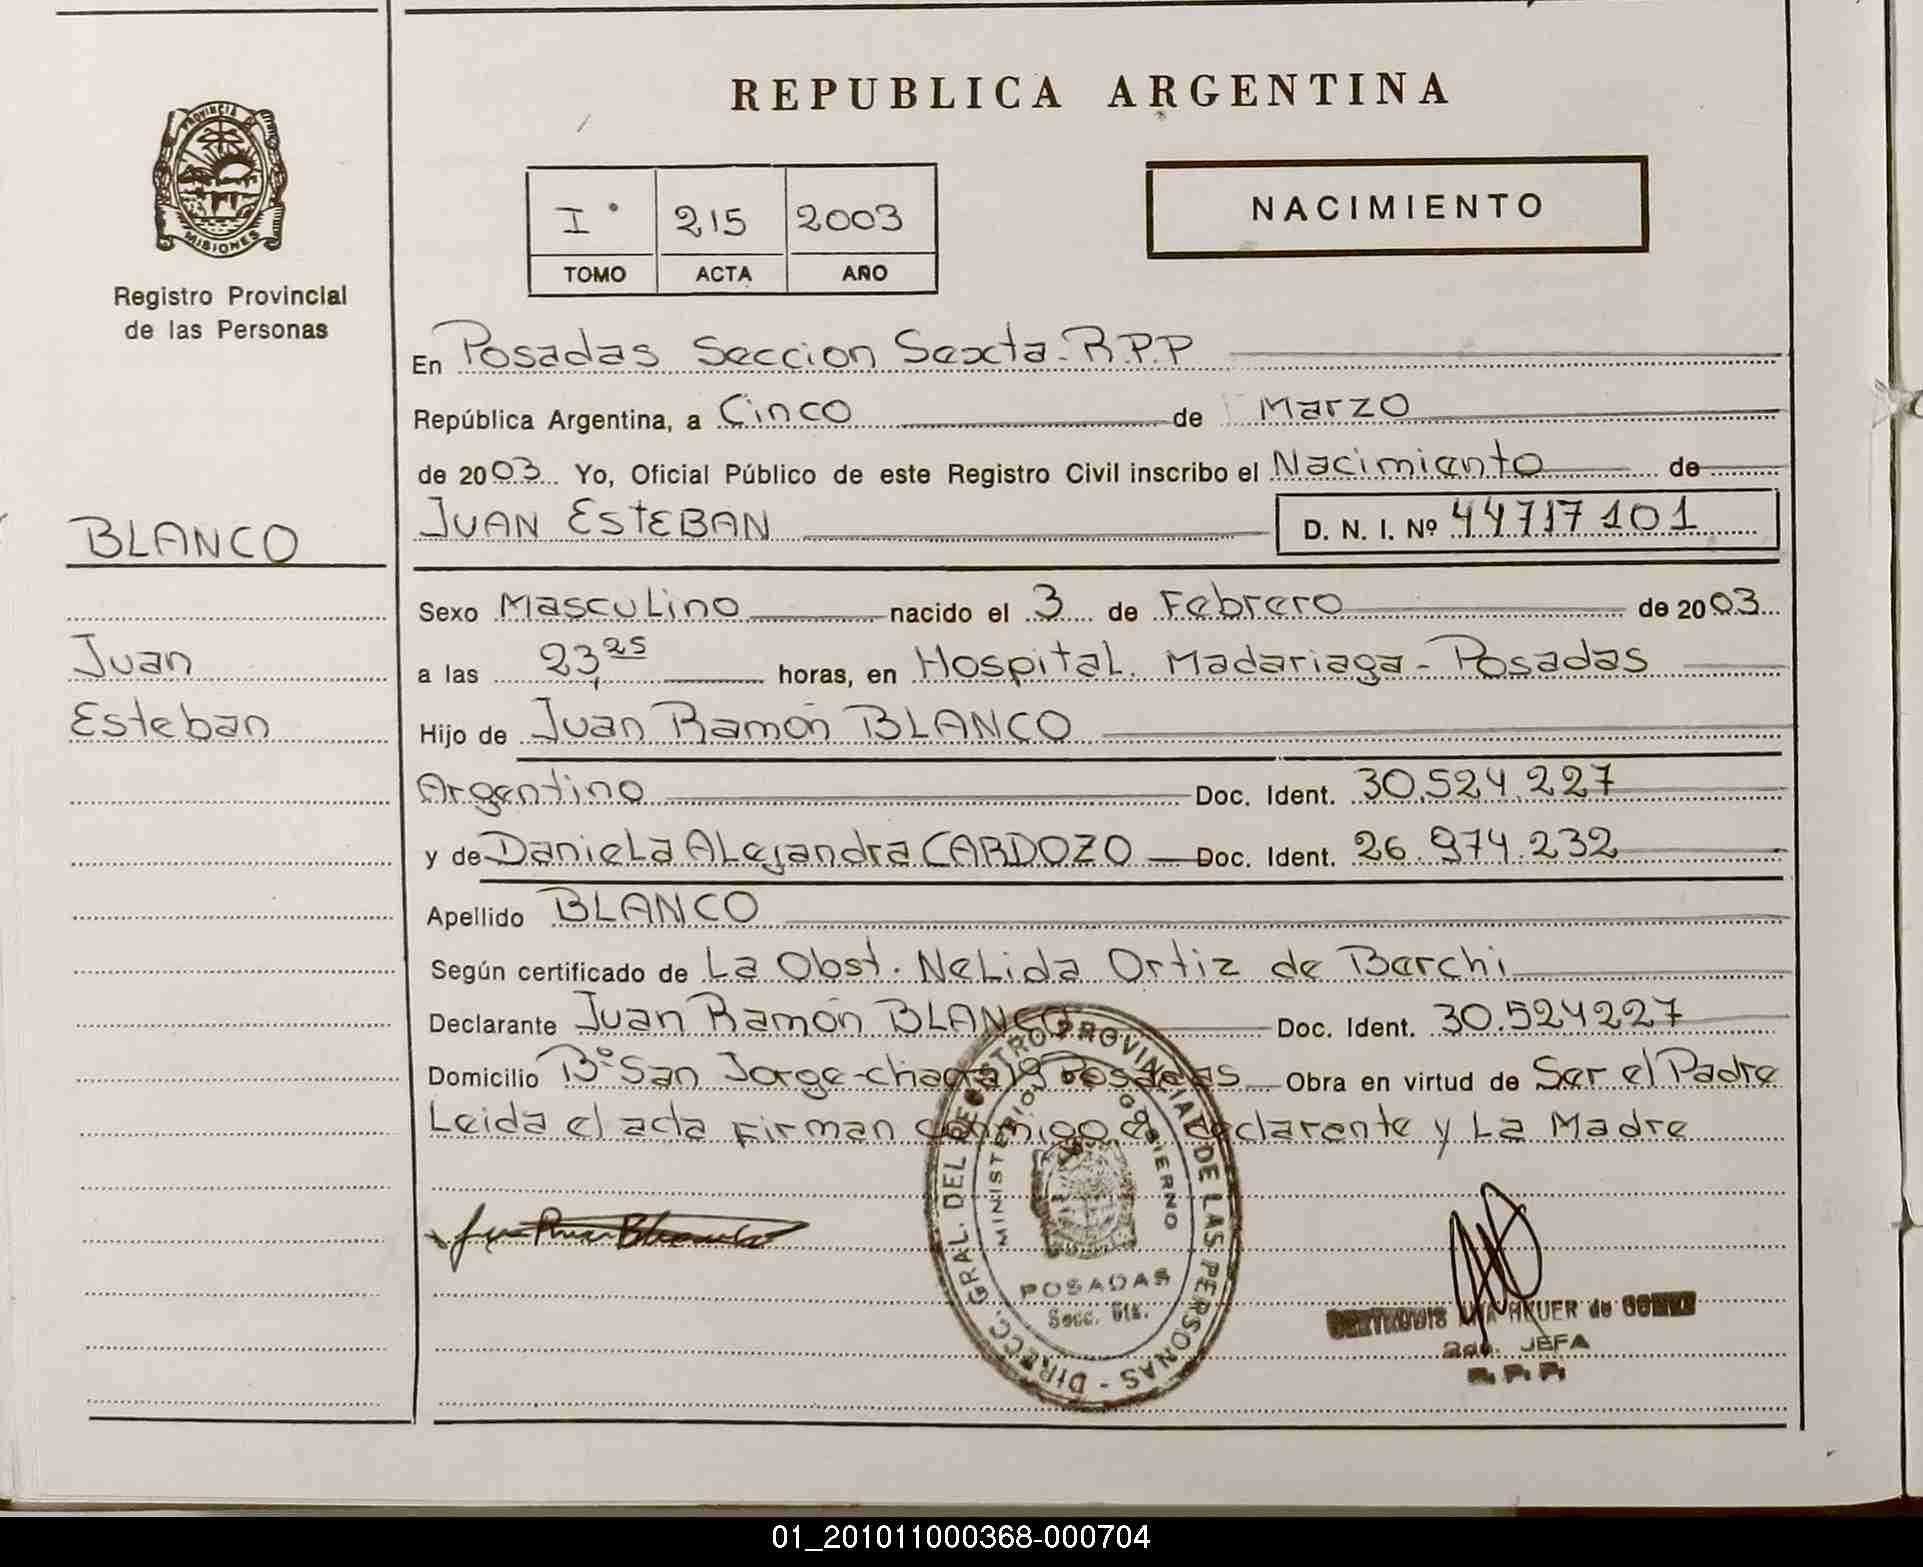 REPUBLICA ARGENTINA
PROVINCIA DE
MISIONES
Registro Provincial
de las Personas
I° 215 2003
TOMO ACTA AÑO
NACIMIENTO
En Posadas Seccion Sexta. R.P.P
República Argentina, a Cinco de Marzo
de 2003 Yo, Oficial Público de este Registro Civil inscribo el Nacimiento de
BLANCO
JUAN ESTEBAN D. N. I. Nº 44717101
Sexo Masculino nacido el 3 de Febrero de 2003
Juan
a las 23,25 horas, en Hospital. Madariaga - Posadas
Esteban
Hijo de Juan Ramón BLANCO
Argentino Doc. Ident. 30.524.227
y de Daniela Alejandra CARDOZO Doc. Ident. 26.974.232
Apellido BLANCO
Según certificado de La Obst. Nelida Ortiz de Berchi
Declarante Juan Ramón BLANCO Doc. Ident. 30.524227
Domicilio B° San Jorge - chacra 19 Posadas Obra en virtud de Ser el Padre
Leida el acta Firman conmigo el declarente y La Madre
DIRECC. GRAL. DEL REGISTRO PROVINCIAL DE LAS PERSONAS
MINISTERIO GOBIERNO
POSADAS
Secc. 6ta.
ANA de GOMEZ
2da. JEFA
R. P. P.
01_201011000368-000704